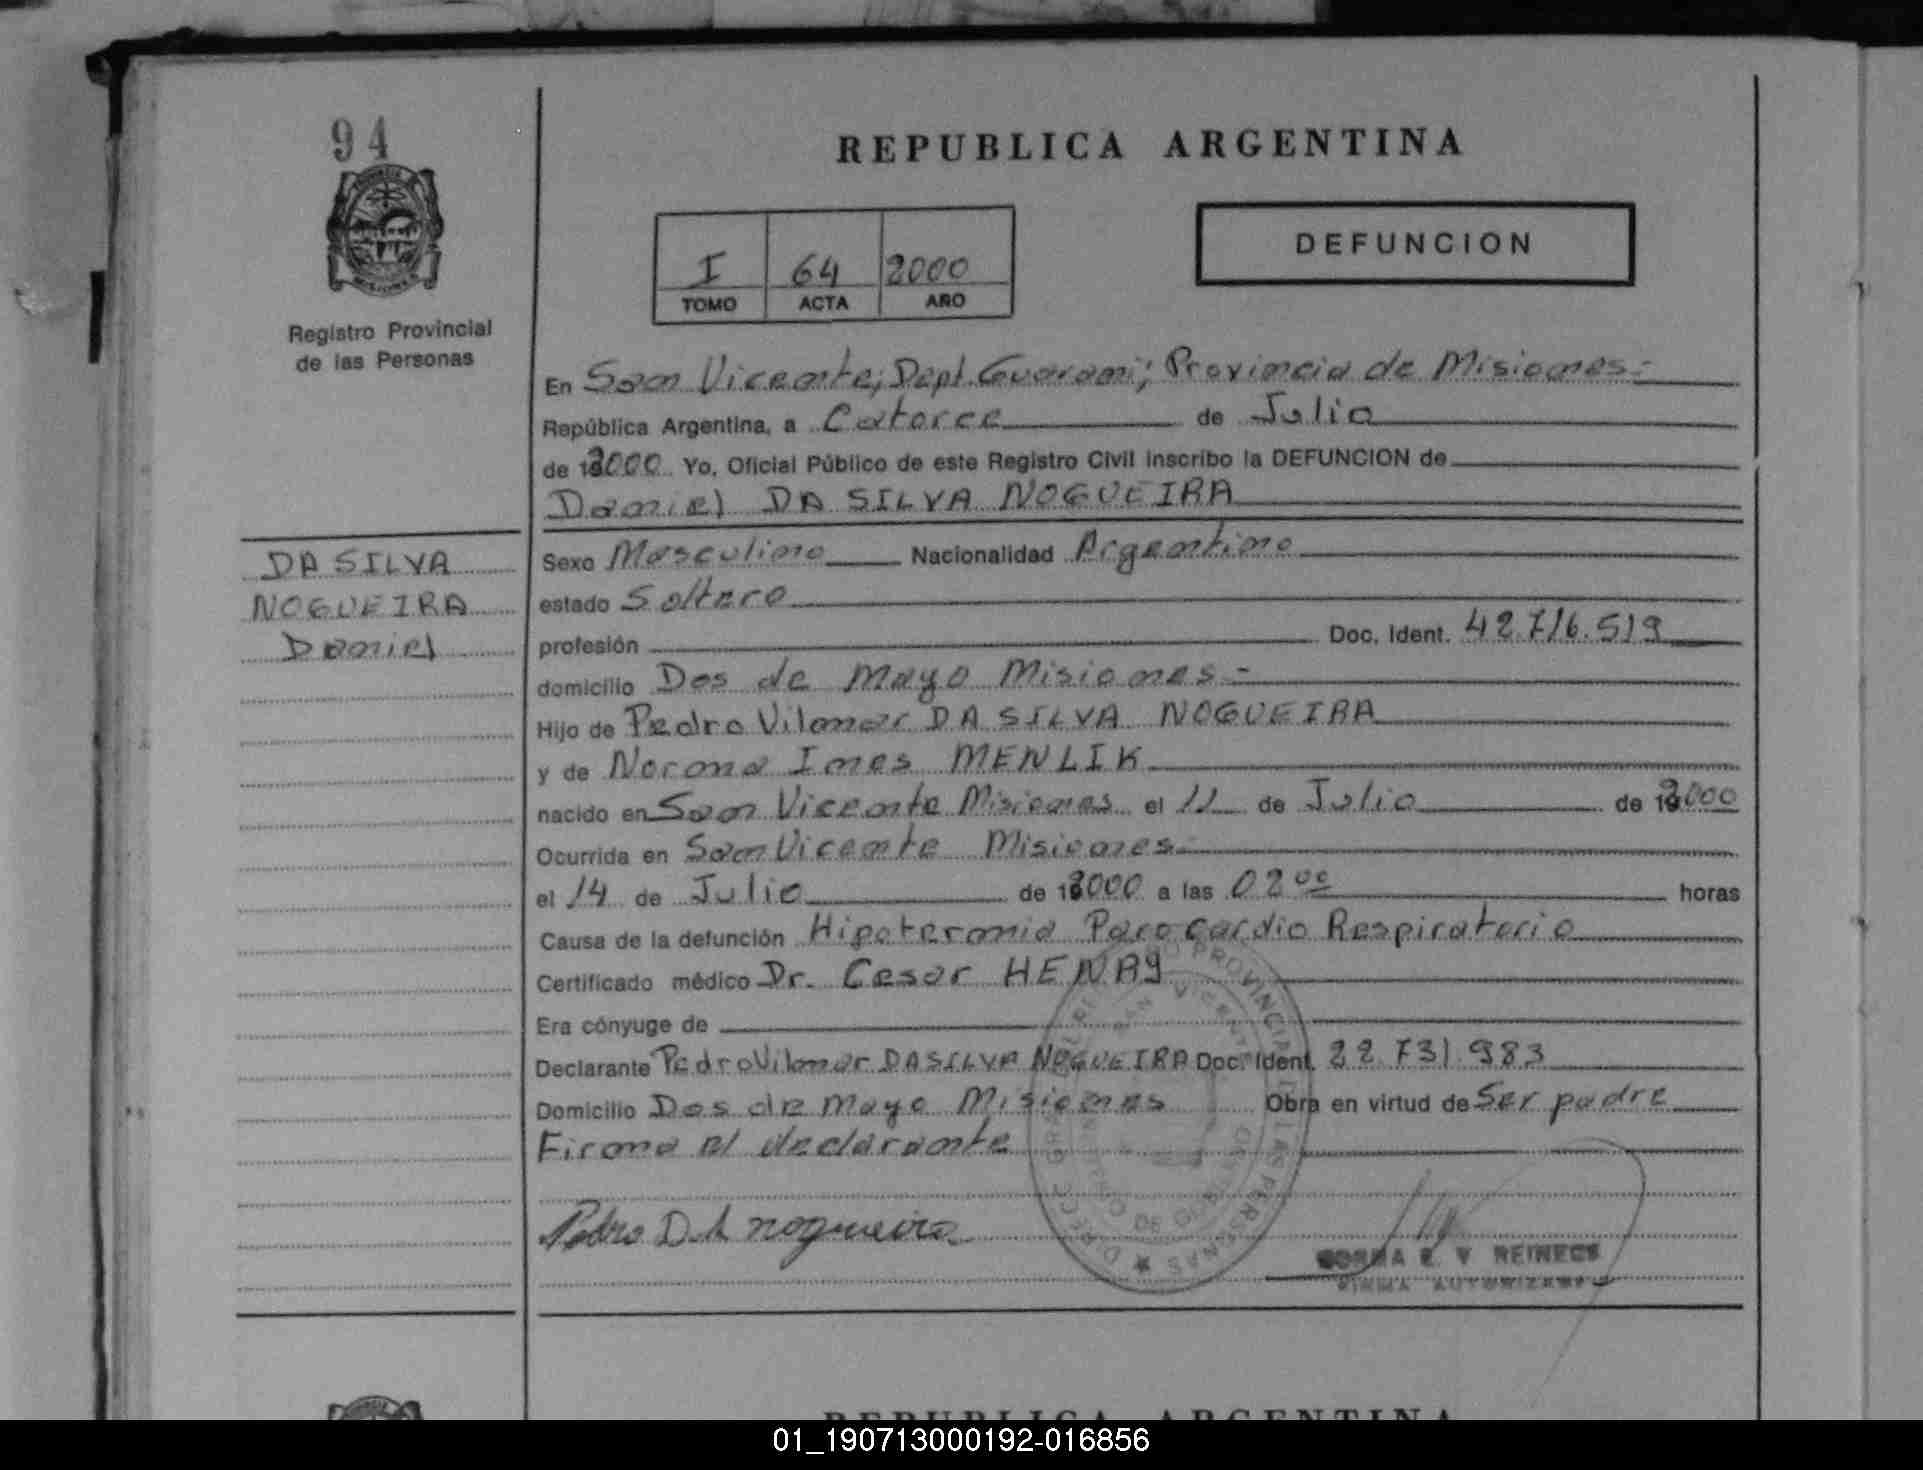 94
REPUBLICA ARGENTINA
DEFUNCION
I 64 2000
TOMO ACTA AÑO
Registro Provincial
de las Personas
En San Vicente; Dept. Guarani; Provincia de Misiones.-
República Argentina, a Catorce de Julio
de 2000 Yo, Oficial Público de este Registro Civil inscribo la DEFUNCION de
Daniel DA SILVA NOGUEIRA
DA SILVA
NOGUEIRA
Daniel
Sexo Masculino Nacionalidad Argentino
estado Soltero
profesión Doc. Ident. 42.716.519
domicilio Dos de Mayo Misiones.-
Hijo de Pedro Vilmar DA SILVA NOGUEIRA
y de Norma Ines MENLIK
nacido en San Vicente Misiones el 11 de Julio de 2000
Ocurrida en San Vicente Misiones.-
el 14 de Julio de 2000 a las 02 00 horas
Causa de la defunción Hipotermia Paro Cardio Respiratorio
Certificado médico Dr. Cesar HENRY
Era cónyuge de
Declarante Pedro Vilmar DA SILVA NOGUEIRA Doc. Ident. 22.731.983
Domicilio Dos de Mayo Misiones Obra en virtud de Ser padre
Firma el declarante
Pedro D.A nogueira
NORMA E. V REINECK
FIRMA AUTORIZADA
REPUBLICA ARGENTINA
01_190713000192-016856